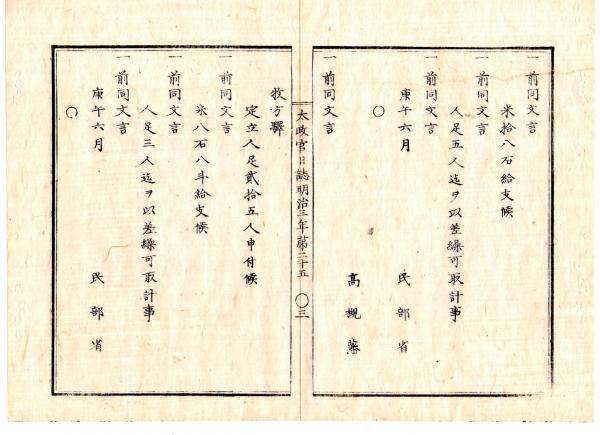 一 前同文言
米拾八石給支候
一 前同文言
人足五人迄ヲ以差繰可取計事
一 前同文言
庚午六月 民部省
○
高槻藩
一 前同文言
太政官日誌明治三年第二十五 ○三
牧方驛
定立人足貳拾五人申付候
一 前同文言
米八石八斗給支候
一 前同文言
人足三人迄ヲ以差繰可取計事
一 前同文言
庚午六月 民部省
○